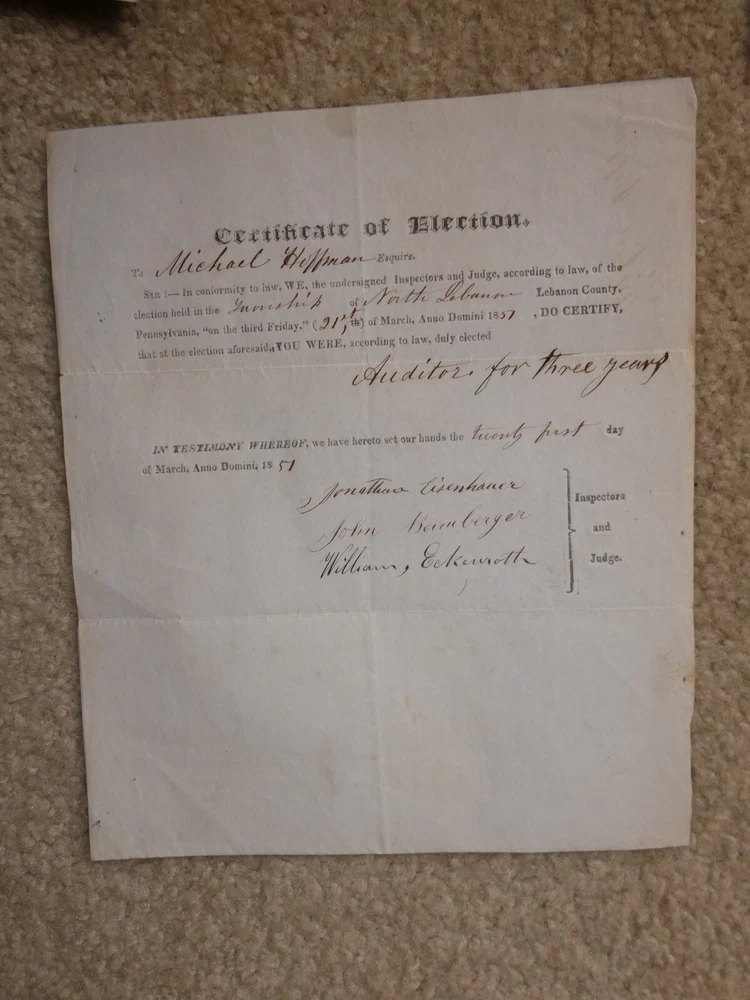 Certificate of Election.
To Michael Hoffman Esquire.
SIR :— In conformity to law, WE, the undersigned Inspectors and Judge, according to law, of the
election held in the Township of North Lebanon Lebanon County,
Pennsylvania, "on the third Friday," (21st, th) of March, Anno Domini 1851 , DO CERTIFY,
that at the election aforesaid, YOU WERE, according to law, duly elected
Auditor for three years
IN TESTIMONY WHEREOF, we have hereto set our hands the twenty first day
of March, Anno Domini, 1851
Jonathan Eisenhauer
Inspectors
John
and
William Eckenroth
Judge.